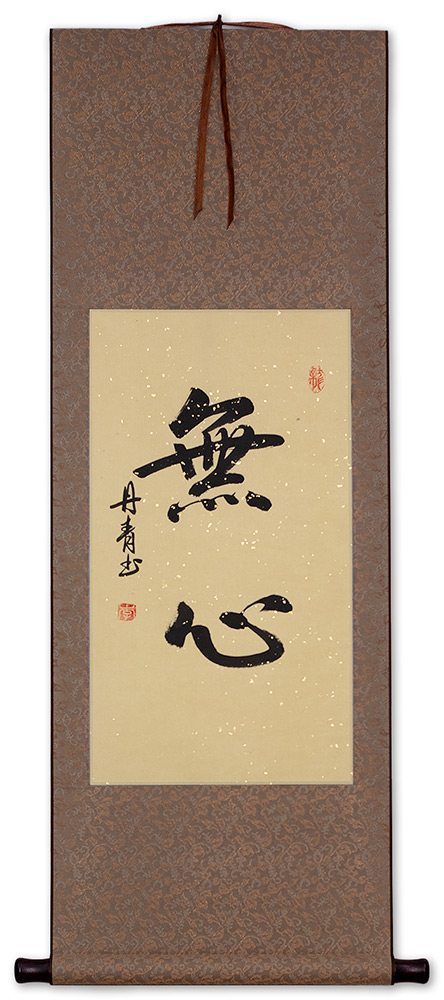 無心
丹青书